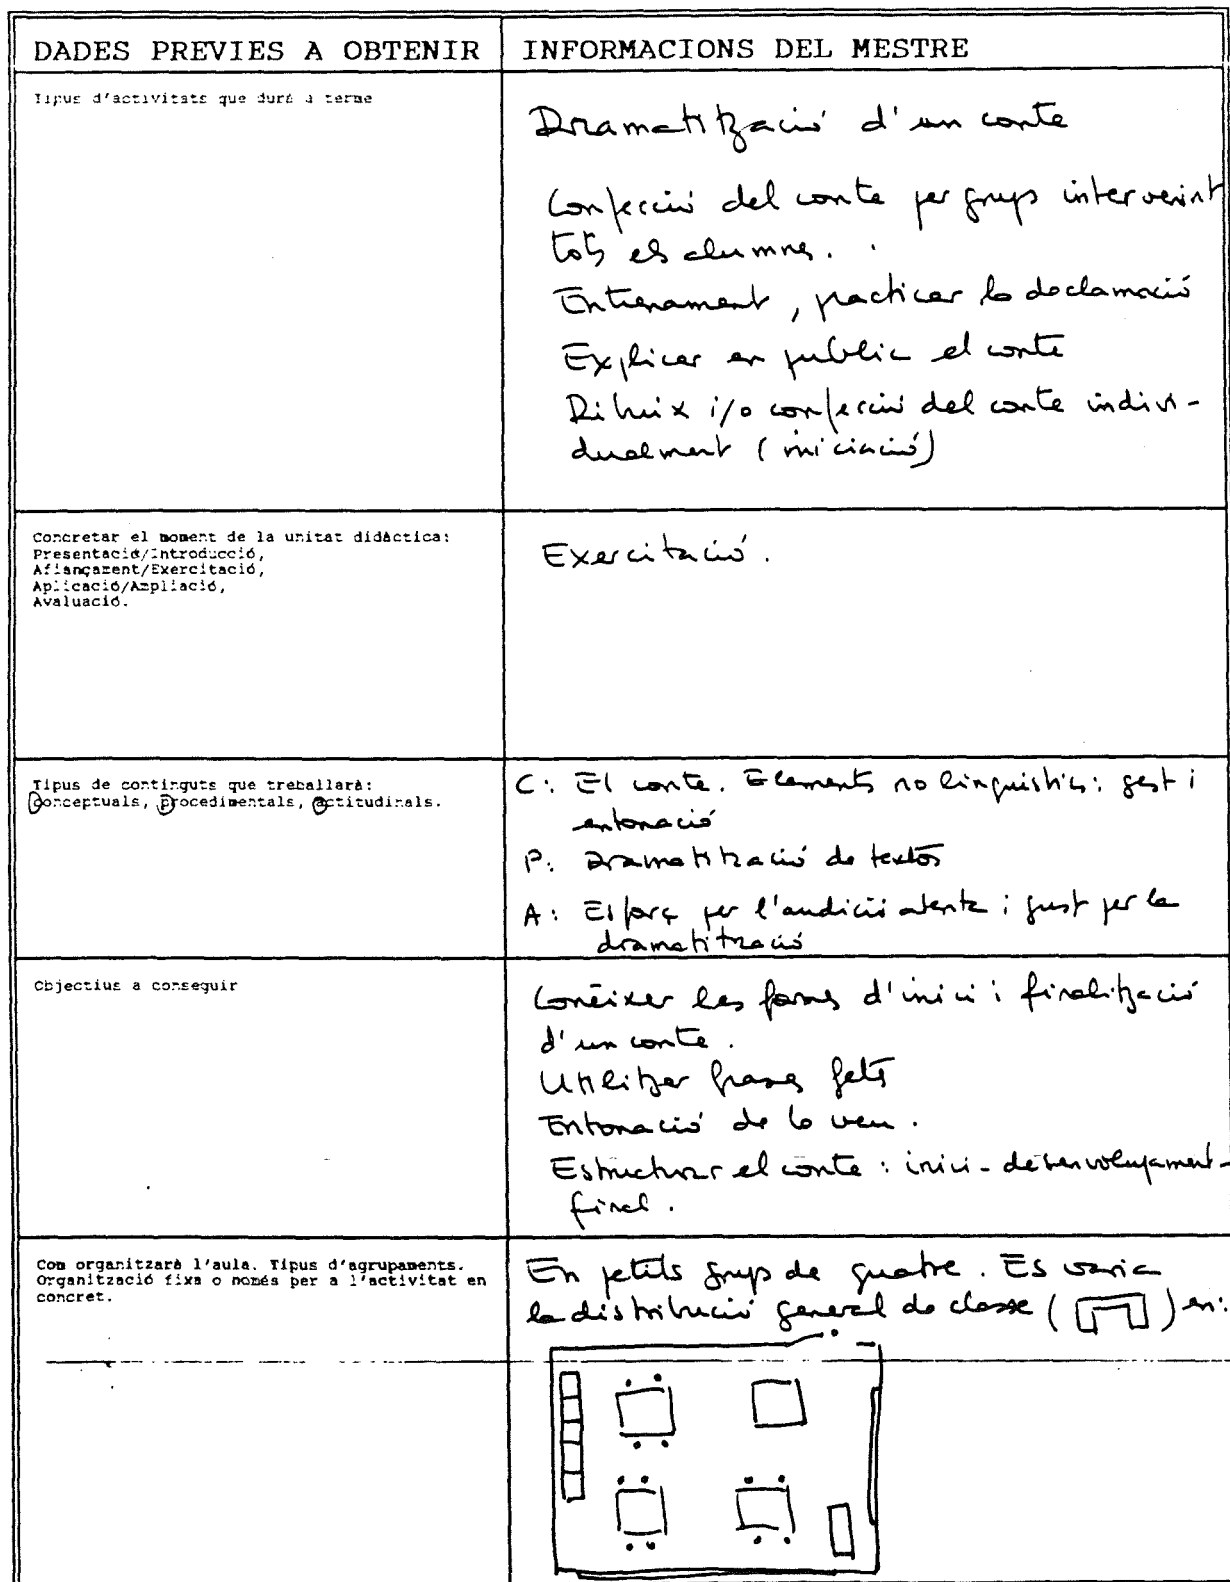 DADES PREVIES A OBTENIR
INFORMACIONS DEL MESTRE
Tipus d'activitats que durà a terme
Dramatització d'un conte
Confecció del conte per grups intervenint
tots els alumnes.
Entrenament, practicar la declamació
Explicar en public el conte
Dibuix i/o confecció del conte indivi-
dualment (iniciació)
Concretar el moment de la unitat didàctica:
Presentació/Introducció,
Afiançament/Exercitació,
Aplicació/Ampliació,
Avaluació.
Exercitació.
Tipus de continguts que treballarà:
Conceptuals, Procedimentals, Actitudinals.
C: El conte. Elements no lingüistics: gest i
entonació
P: Dramatització de textos
A: Esforç per l'audició atenta i gust per la
dramatització
Objectius a conseguir
Conèixer les formes d'inici i finalització
d'un conte.
Utilitzar frases fets
Entonació de la veu.
Estructurar el conte: inici-desenvolupament-
final.
Com organitzarà l'aula. Tipus d'agrupaments.
Organització fixa o només per a l'activitat en
concret.
En petits grups de quatre. Es varia
la distribució general de classe ( ) en: